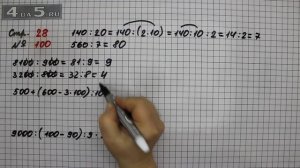 4 ДА 5.RU
Стр. 28
№ 100
140 : 20 = 140 : (2·10) = 140 : 10 : 2 = 14 : 2 = 7
560 : 7 = 80
8100 : 900 = 81 : 9 = 9
3200 : 800 = 32 : 8 = 4
500 + (600 - 3·100) : 10
9000 : (100 - 90) : 9 ·